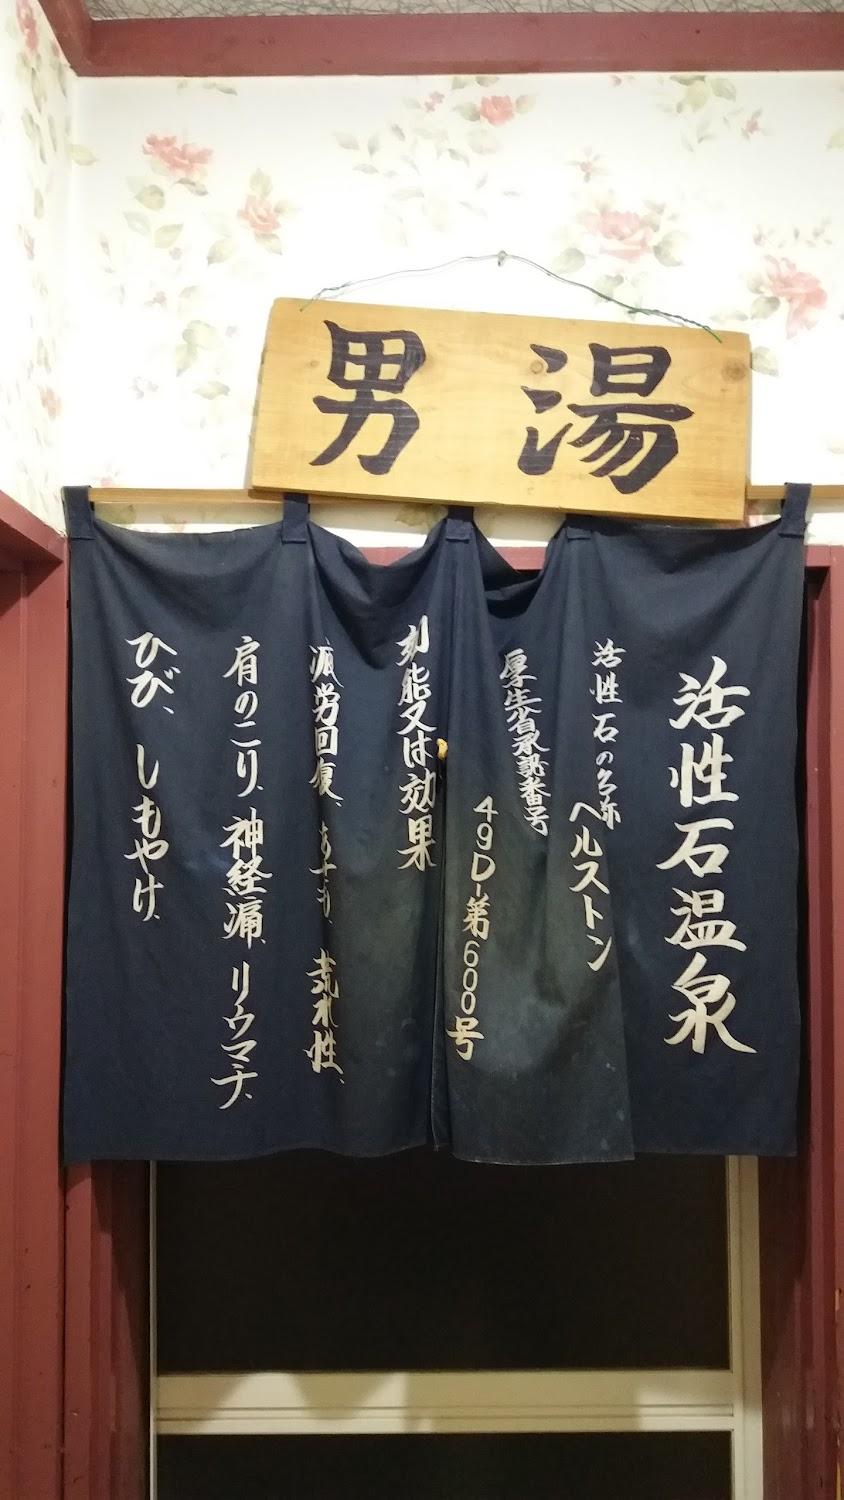 男湯
活性石温泉
活性石の名称
ヘルストン
厚生省承認番号
49D-第600号
効能又は効果
疲労回復、あせも、荒れ性、
肩のこり、神経痛、リウマチ、
ひび、しもやけ、